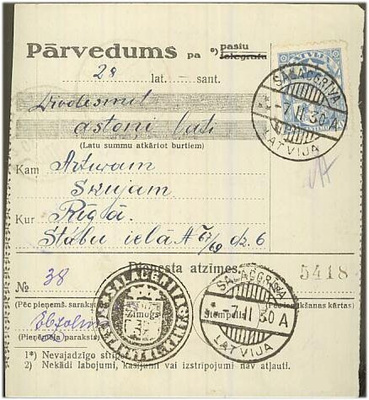 Pārvedums pa *) pastu
telegrafu
28 lat. — sant.
Divdesmit
astoņi lati
(Latu summu atkārtot burtiem)
Kam Arturam
Skujam
Kur Rīgā.
Stabu ielā № 67/69 dz. 6
SALACGRĪVA
-7 II 30 A
LATVIJA
Dienesta atzīmes.
№ 38
5418
(Pēc pieņemš. saraksta)
Zīmogs
SALACGRĪVA
-7 II 30 A
LATVIJA
Stempelis
(Pieņēmēja paraksts)
1*) Nevajadzīgo strīpot.
2) Nekādi labojumi, kasījumi vai izstrīpojumi nav atļauti.